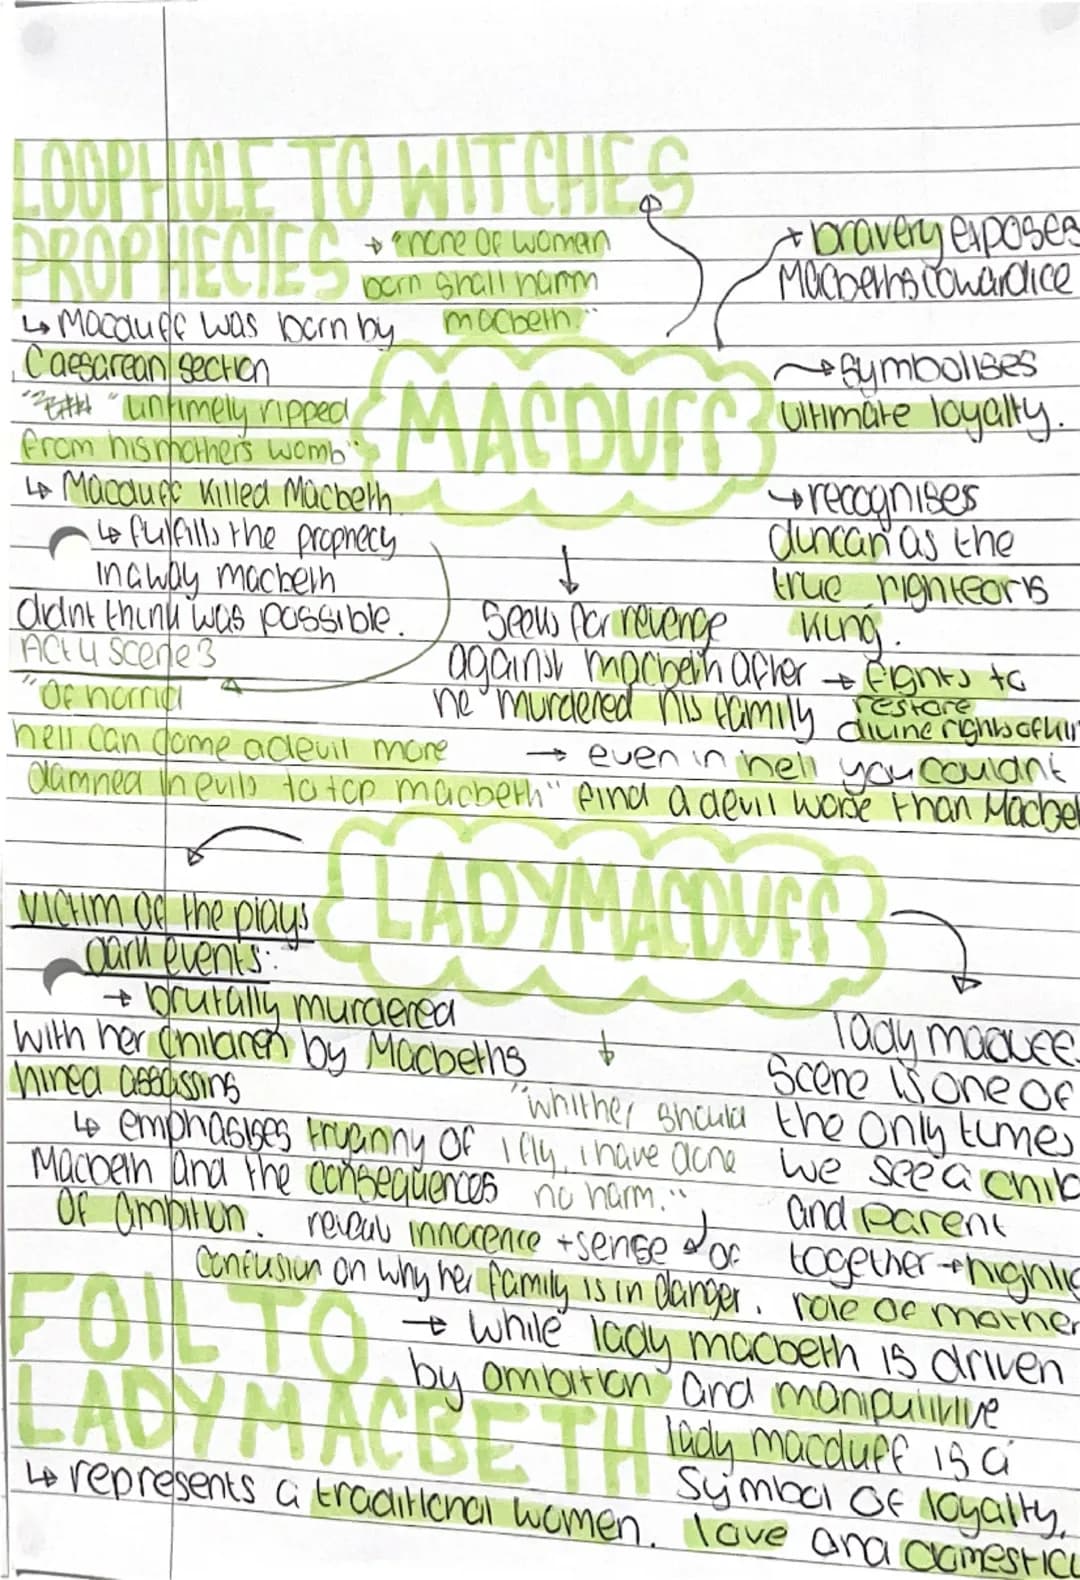 LOOPHOLE TO WITCHES
PROPHECIES
→ "none of woman
born shall harm
macbeth."
↳ Macduff was born by
Caesarean section
"untimely ripped
from his mother's womb"
↳ Macduff killed Macbeth
↳ fulfills the prophecy
in a way macbeth
didnt think was possible.
ACT 4 scene 3
"Of horrid
hell can come a devil more
damned in evils to top macbeth"
→ even in hell you couldnt
find a devil worse than Macbet
MACDUFF
→ bravery exposes
Macbeths cowardice
→ symbolises
ultimate loyalty.
→ recognises
duncan as the
true
king.
→ fights to
restore
divine rights of
Seeks for revenge
against macbeth after
he murdered his family
LADY MACDUFF
victim of the plays
dark events:
→ brutally murdered
with her children by Macbeths
hired assassins
↳ emphasises tryanny of
Macbeth and the consequences
of ambition.
"whither should
I fly, i have done
no harm."
reveals innocence + sense of
confusion on why her family is in danger.
lady
scene is one of
the only times
we see a child
and parent
together →
role of mother
FOIL TO
LADY MACBETH
→ while lady macbeth is driven
by ambition and
lady macduff is a
symbol of loyalty,
love and
↳ represents a traditional women.